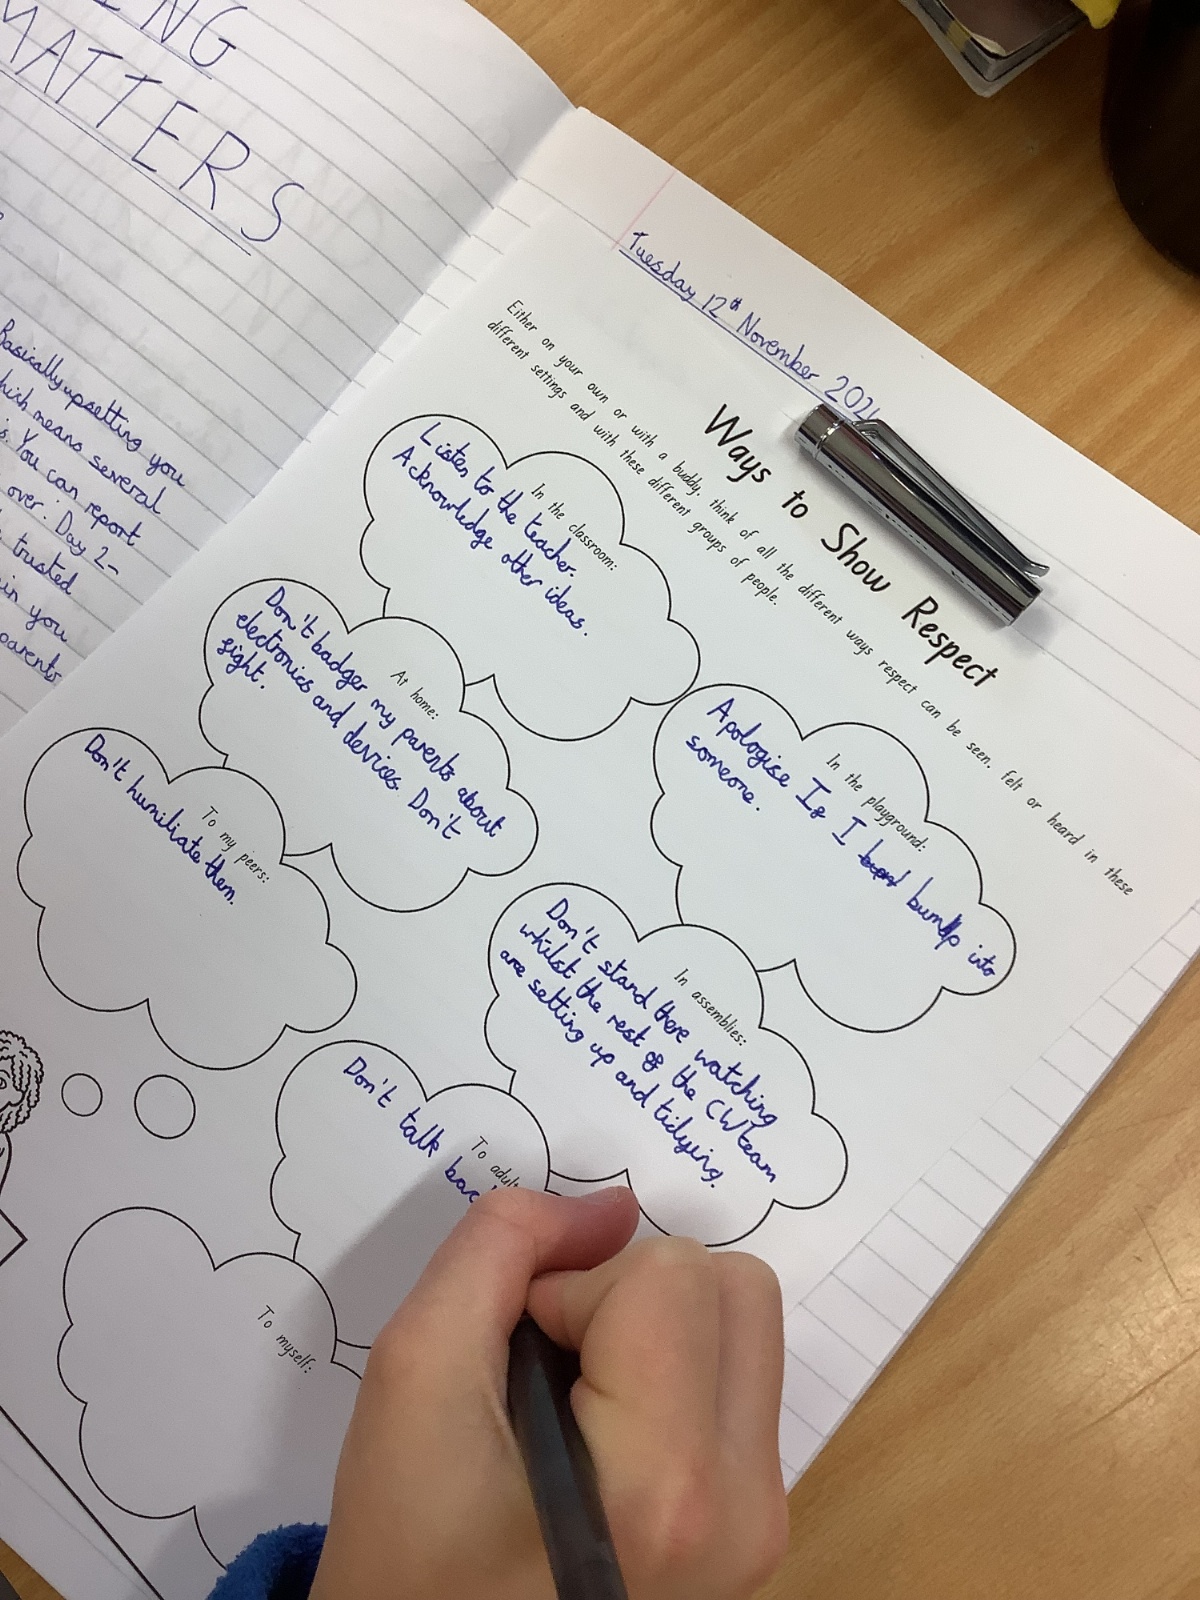 ING
MATTERS
Basically upsetting you
which means several
You can report
over. Day 2-
trusted
in you
parents
Tuesday 12th November 202
Ways to Show Respect
Either on your own or with a buddy, think of all the different ways respect can be seen, felt or heard in these
different settings and with these different groups of people.
In the classroom:
Listen to the teacher.
Acknowledge other ideas.
In the playground:
Apologise If I bump into
someone.
At home:
Don't badger my parents about
electronics and devices. Don't
fight.
In assemblies:
Don't stand there watching
whilst the rest of the CW team
are setting up and tidying.
To my peers:
Don't humiliate them.
To adult
Don't talk bac
To myself: